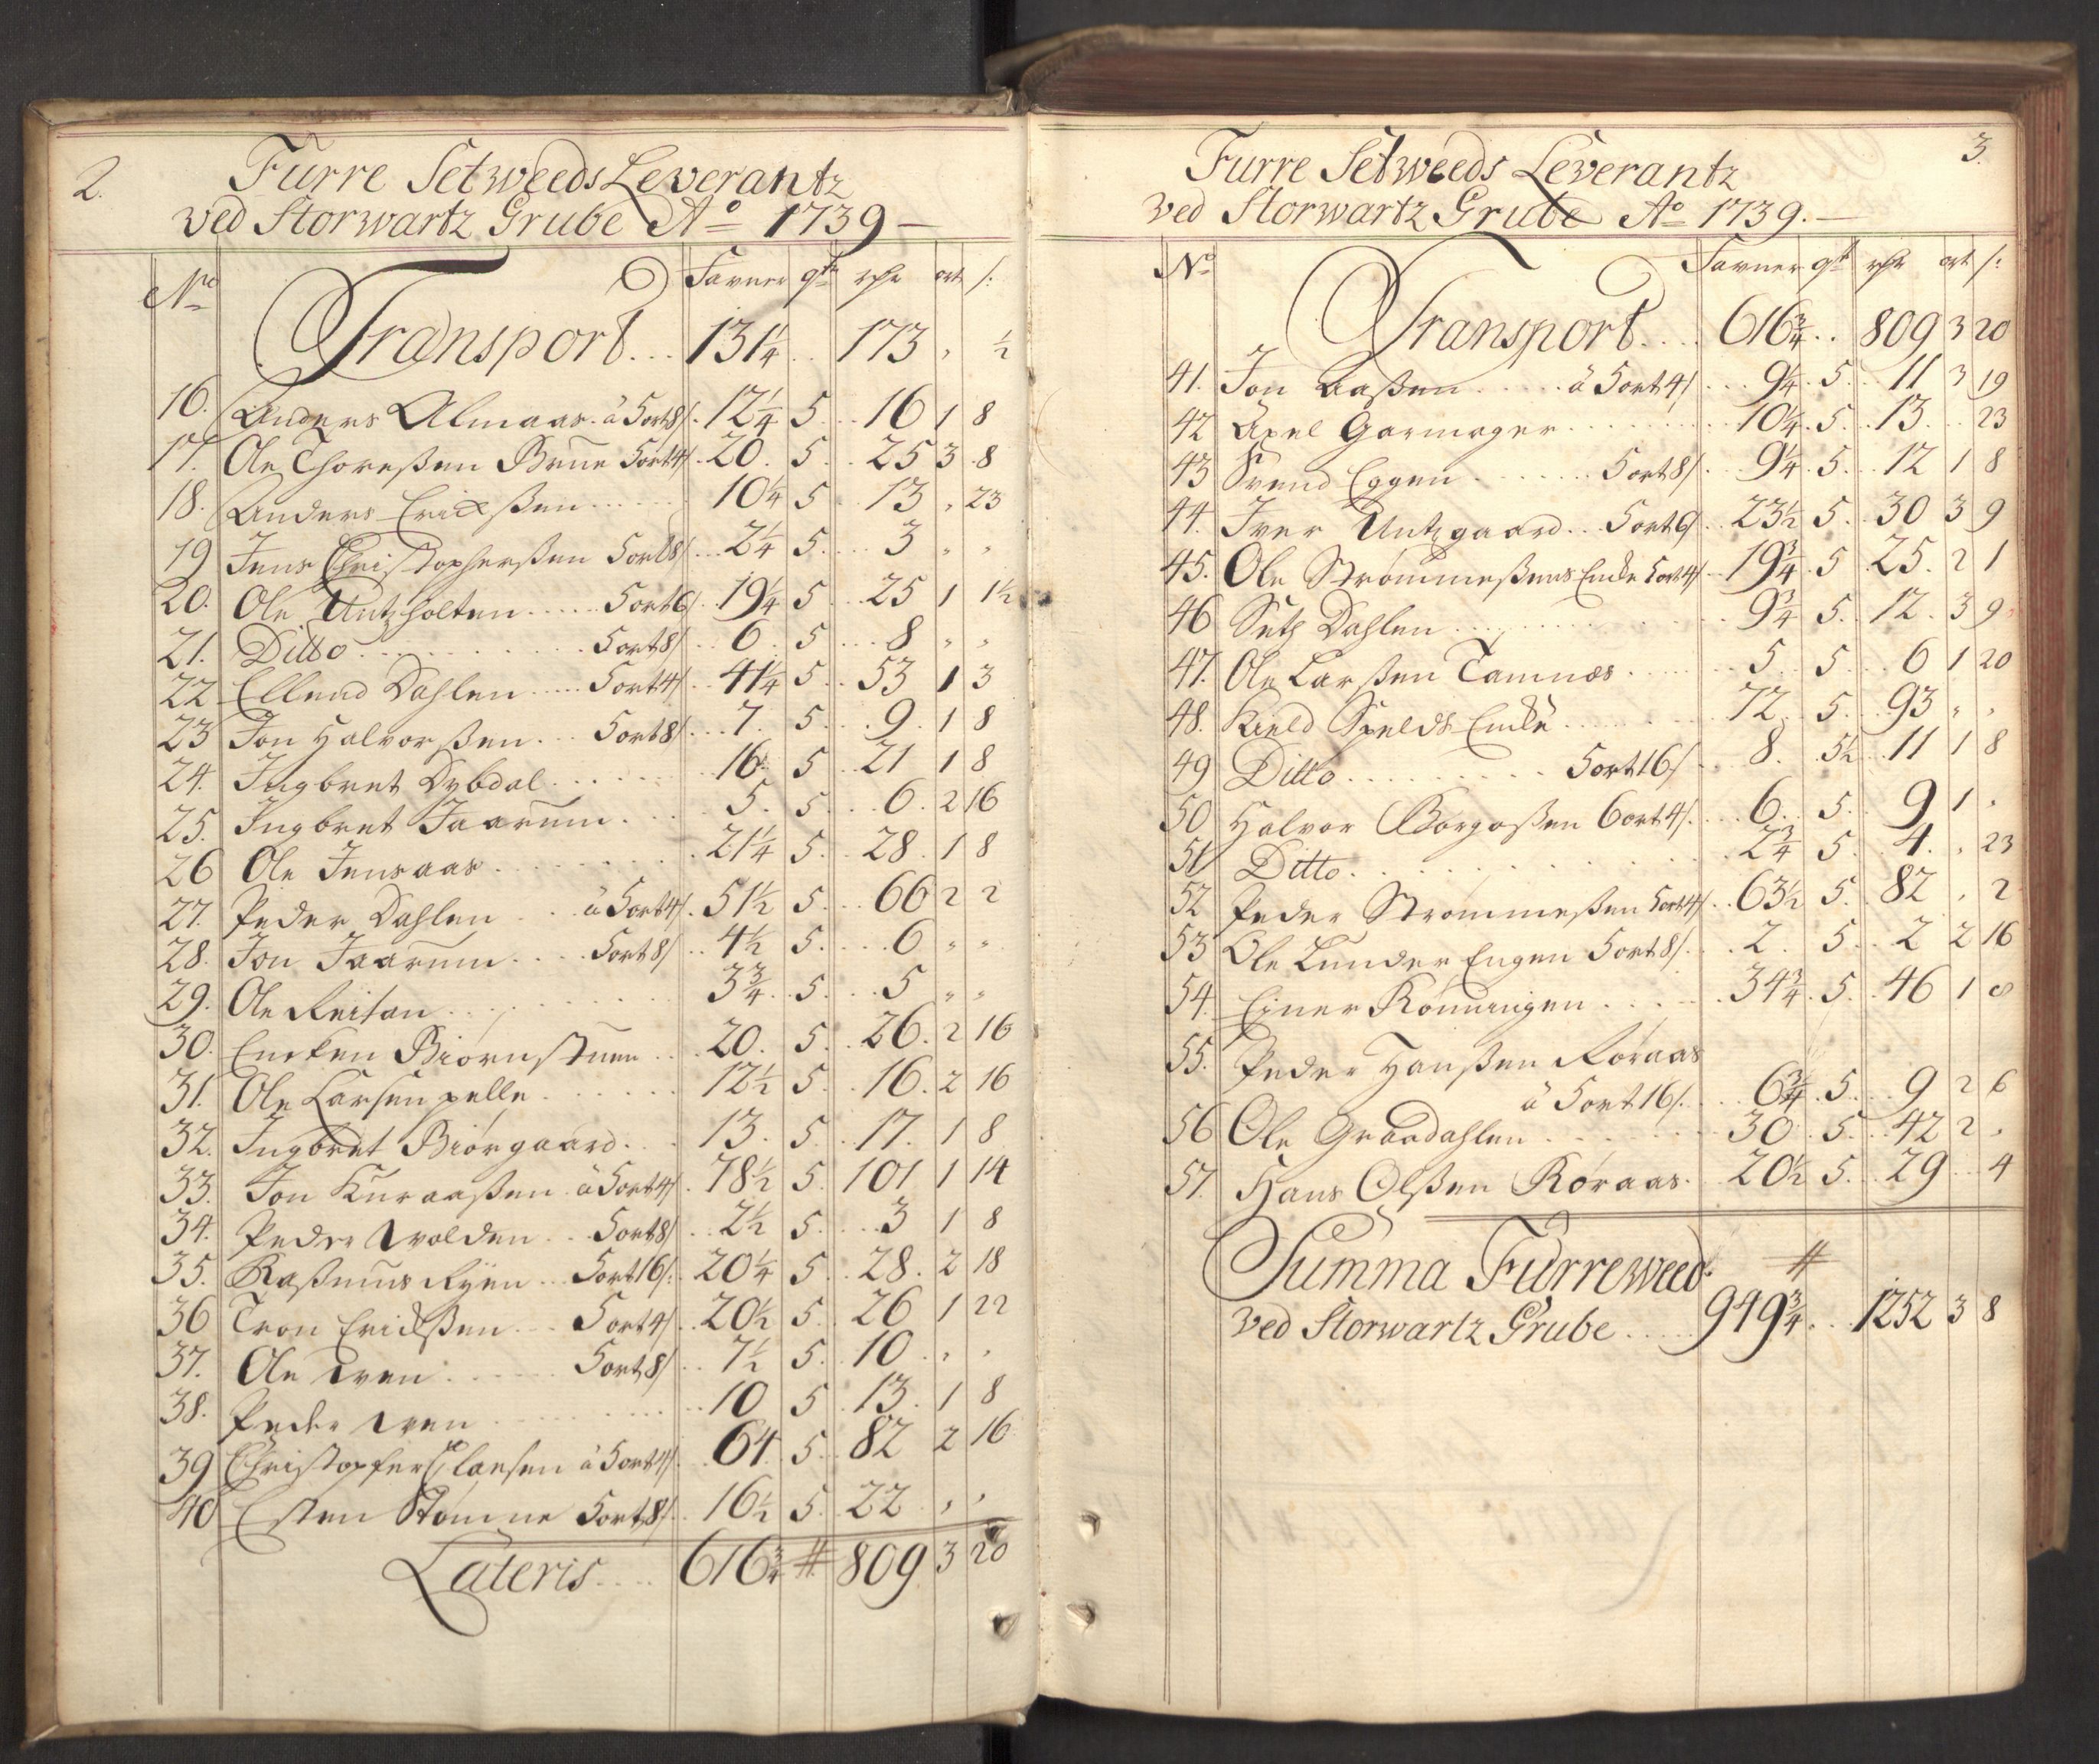 2.
Furre Setweeds Leverantz
ved Storwartz Grube Aº 1739 —
Nº Favner qt rdr ort s:
Transport... 131¼ .. 173 , ½
16. Anders Almaas. à 5ort8s. 12¼ 5 .. 16 1 8
17. Ole Thoreßen Brue 5ort4s. 20. 5. .. 25 3 8
18. Anders Erichßen ..... 10¼ 5 .. 13 , 23
19 Jens Christopherßen 5ort8s ... 2¼ 5. ... 3 " "
20. Ole Untzholten ..... 5ort6s. 19¼ 5 .. 25 1 1½
21. Ditto ......... 5ort8s .. 6. 5 ... 8 " "
22 Ellend Dahlen .... 5ort4s .. 41¼ 5. .. 53 1 3
23 Jon Halvorßen ... 5ort8s ... 7. 5. .. 9. 1 8
24. Ingbret Dybdal ...... 16. 5 .. 21 1 8
25. Ingbret Jaarum .... 5. 5. .. 6. 2 16
26 Ole Jensaas ........ 21¼ 5. .. 28. 1 8
27. Peder Dahlen .. à 5ort4s. 51½ 5. .. 66 2 2
28. Jon Jaarum .... 5ort8s .. 4½ 5. ... 6 " "
29. Ole Reitan ....... 3¾ .. 5. .. 5 " "
30. Encken Biørnstuen .. 20. 5. .. 26. 2 16
31. Ole Larsen pelle ...... 12½ 5. .. 16. 2 16
32. Ingbret Biørgaard ... 13. 5. .. 17. 1 8
33. Jon Knraaßen. à 5ort4s. 78½ 5. 101 1 14
34. Peder Volden .. 5ort8s .. 2½ 5. ... 3 1 8
35. Raßmus Ryen ... 5ort16s: 20¼ 5. .. 28. 2 18
36 Tron Erichßen ... 5ort4s .. 20½ 5. .. 26 1 22
37. Ole Tven ..... 5ort8s .. 7½ 5. .. 10 " "
38. Peder Tven ........ 10 5 .. 13. 1 8
39 Christopfer Clansen à 5ort4s. 64. 5. .. 82 2 16
40 Esten Stømne 5ort8s .. 16½ 5. .. 22 , ,
Lateris .... 616¾ # 809 3 20
3.
Furre Setweeds Leverantz
ved Storwartz Grube Aº 1739. —
Nº Favner qt rdr ort s:
Transport .... 616¾ .. 809 3 20
41. Jon Aaßen ..... à 5ort4s ... 9¼ . 5. .. 11 3 19
42 Axel Garmager ......... 10¼ . 5. .. 13. .. 23
43 Svend Eggen ...... 5ort8s ... 9¼ . 5. .. 12 1 8
44. Iver Untzgaard ... 5ort6s .. 23½ 5. .. 30 3 9
45. Ole Strømmeßens Enke 5ort4s .. 19¾ . 5 .. 25. 2 1
46 Seth Dahlen .......... 9¾ 5. .. 12. 3 9
47. Ole Larßen Tamnæs ..... 5 .. 5 .. 6 1 20
48. Kield Spelds Enke ....... 72. 5. .. 93 " "
49 Ditto ......... 5ort16s .. 8. 5½ .. 11 1 8
50. Halvor Borgoßen 6ort4s. ... 6. 5. .. 9 1 "
51 Ditto .......... 2¾ 5. .. 4. , 23
52 Peder Strømmeßen 5ort4s .. 63½ 5. .. 82 , 2
53 Ole Lunder Engen 5ort8s. .. 2. 5. .. 2 2 16
54. Einer Rønningen ..... 34¾ . 5. .. 46 1 8
55. Peder Hanßen Røraas
à 5ort16s. ... 6¾ . 5. .. 9 2 6
56 Ole Graadahlen ....... 30 . 5. .. 42 2 "
57. Hans Olßen Røraas .. 20½ 5. .. 29 .. 4
Summa Furreweed #
ved Storwartz Grube .... 949¾ ... 1252 3 8